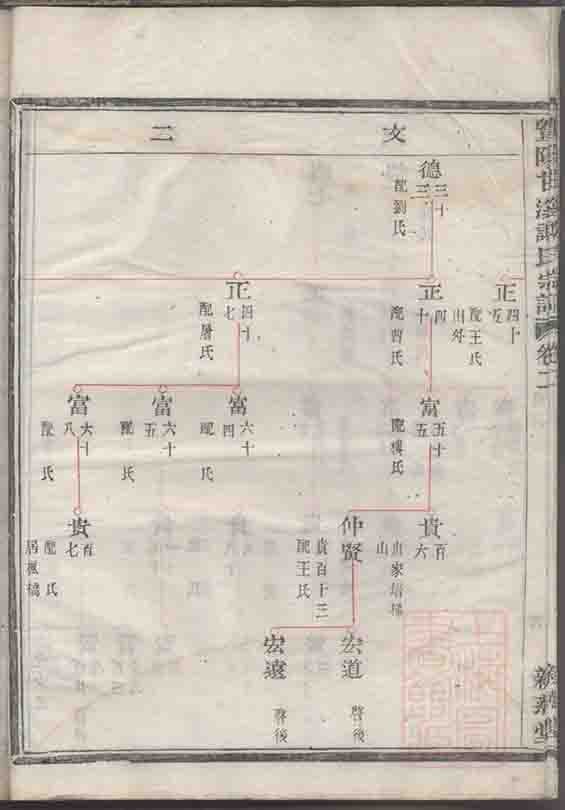 文
二
德三十三
配劉氏
正四十五
配王氏
山外
正四十
配曹氏
正四十七
配屠氏
富五十五
配樓氏
富六十四
配 氏
富六十五
配 氏
富六十八
配 氏
貴百六
山
仲賢
貴百十三
配王氏
貴百七
配 氏
居楓橋
宏道
啓後
宏遠
啓後
卷二